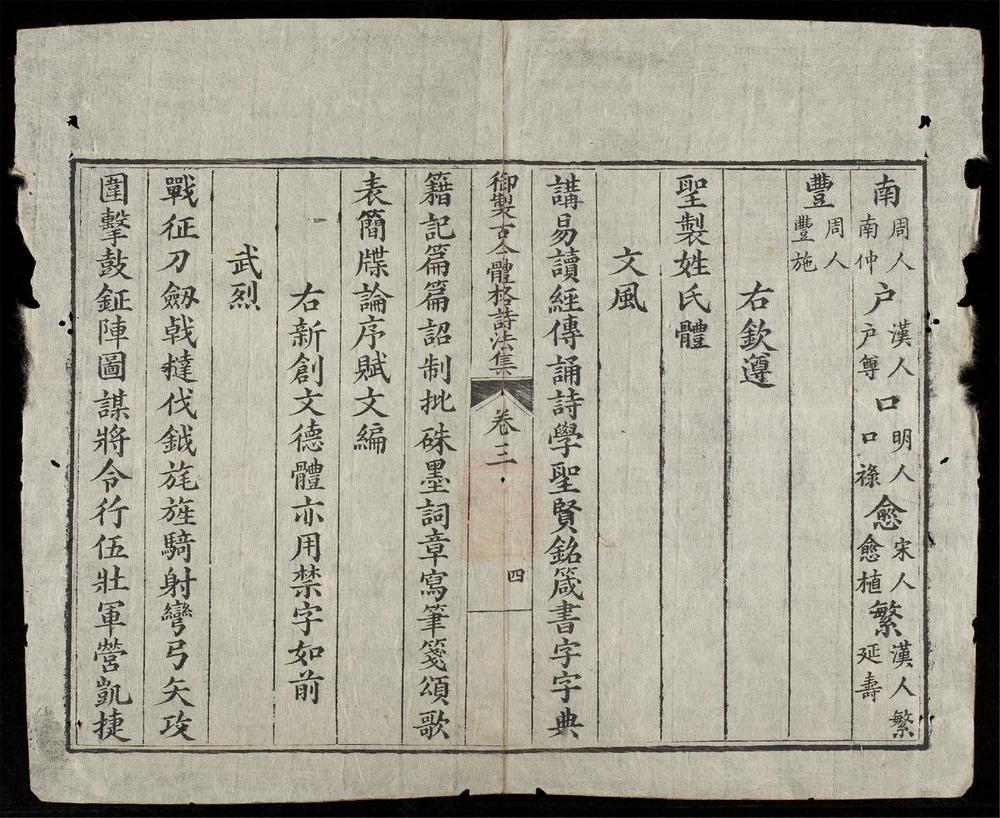 南周人南仲户漢人户尊口明人口祿愈宋人愈植繁漢人繁延壽
豐周人豐施
右欽遵
聖製姓氏體
文風
講易讀經傳誦詩學聖賢銘箴書字字典
御製古今體格詩法集 卷三 四
籍記篇篇詔制批硃墨詞章寫筆箋頌歌
表簡牒論序賦文編
右新創文德體亦用禁字如前
武烈
戰征刀劒戟撻伐鉞旄旌騎射彎弓矢攻
圍擊鼓鉦陣圖謀將令行伍壯軍營凱捷